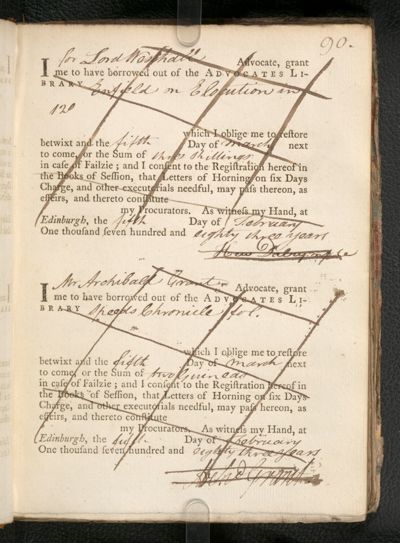 90.
I for Lord Westhall Advocate, grant
me to have borrowed out of the ADVOCATES LI-
BRARY Enfield on Elocution in
120
which I oblige me to restore
betwixt and the fifth Day of March next
to come, or the Sum of three shillings
in case of Failzie; and I consent to the Registration hereof in
the Books of Session, that Letters of Horning on six Days
Charge, and other executorials needful, may pass hereon, as
effeirs, and thereto constitute
my Procurators. As witness my Hand, at
Edinburgh, the fifth Day of February
One thousand seven hundred and eighty three years
Hew Dalrymple
I Mr Archibald Grant Advocate, grant
me to have borrowed out of the ADVOCATES LI-
BRARY Speeds Chronicle fol.
which I oblige me to restore
betwixt and the fifth Day of March next
to come, or the Sum of two Guineas
in case of Failzie; and I consent to the Registration hereof in
the Books of Session, that Letters of Horning on six Days
Charge, and other executorials needful, may pass hereon, as
effeirs, and thereto constitute
my Procurators. As witness my Hand, at
Edinburgh, the fifth Day of February
One thousand seven hundred and eighty three years
Archd Grant